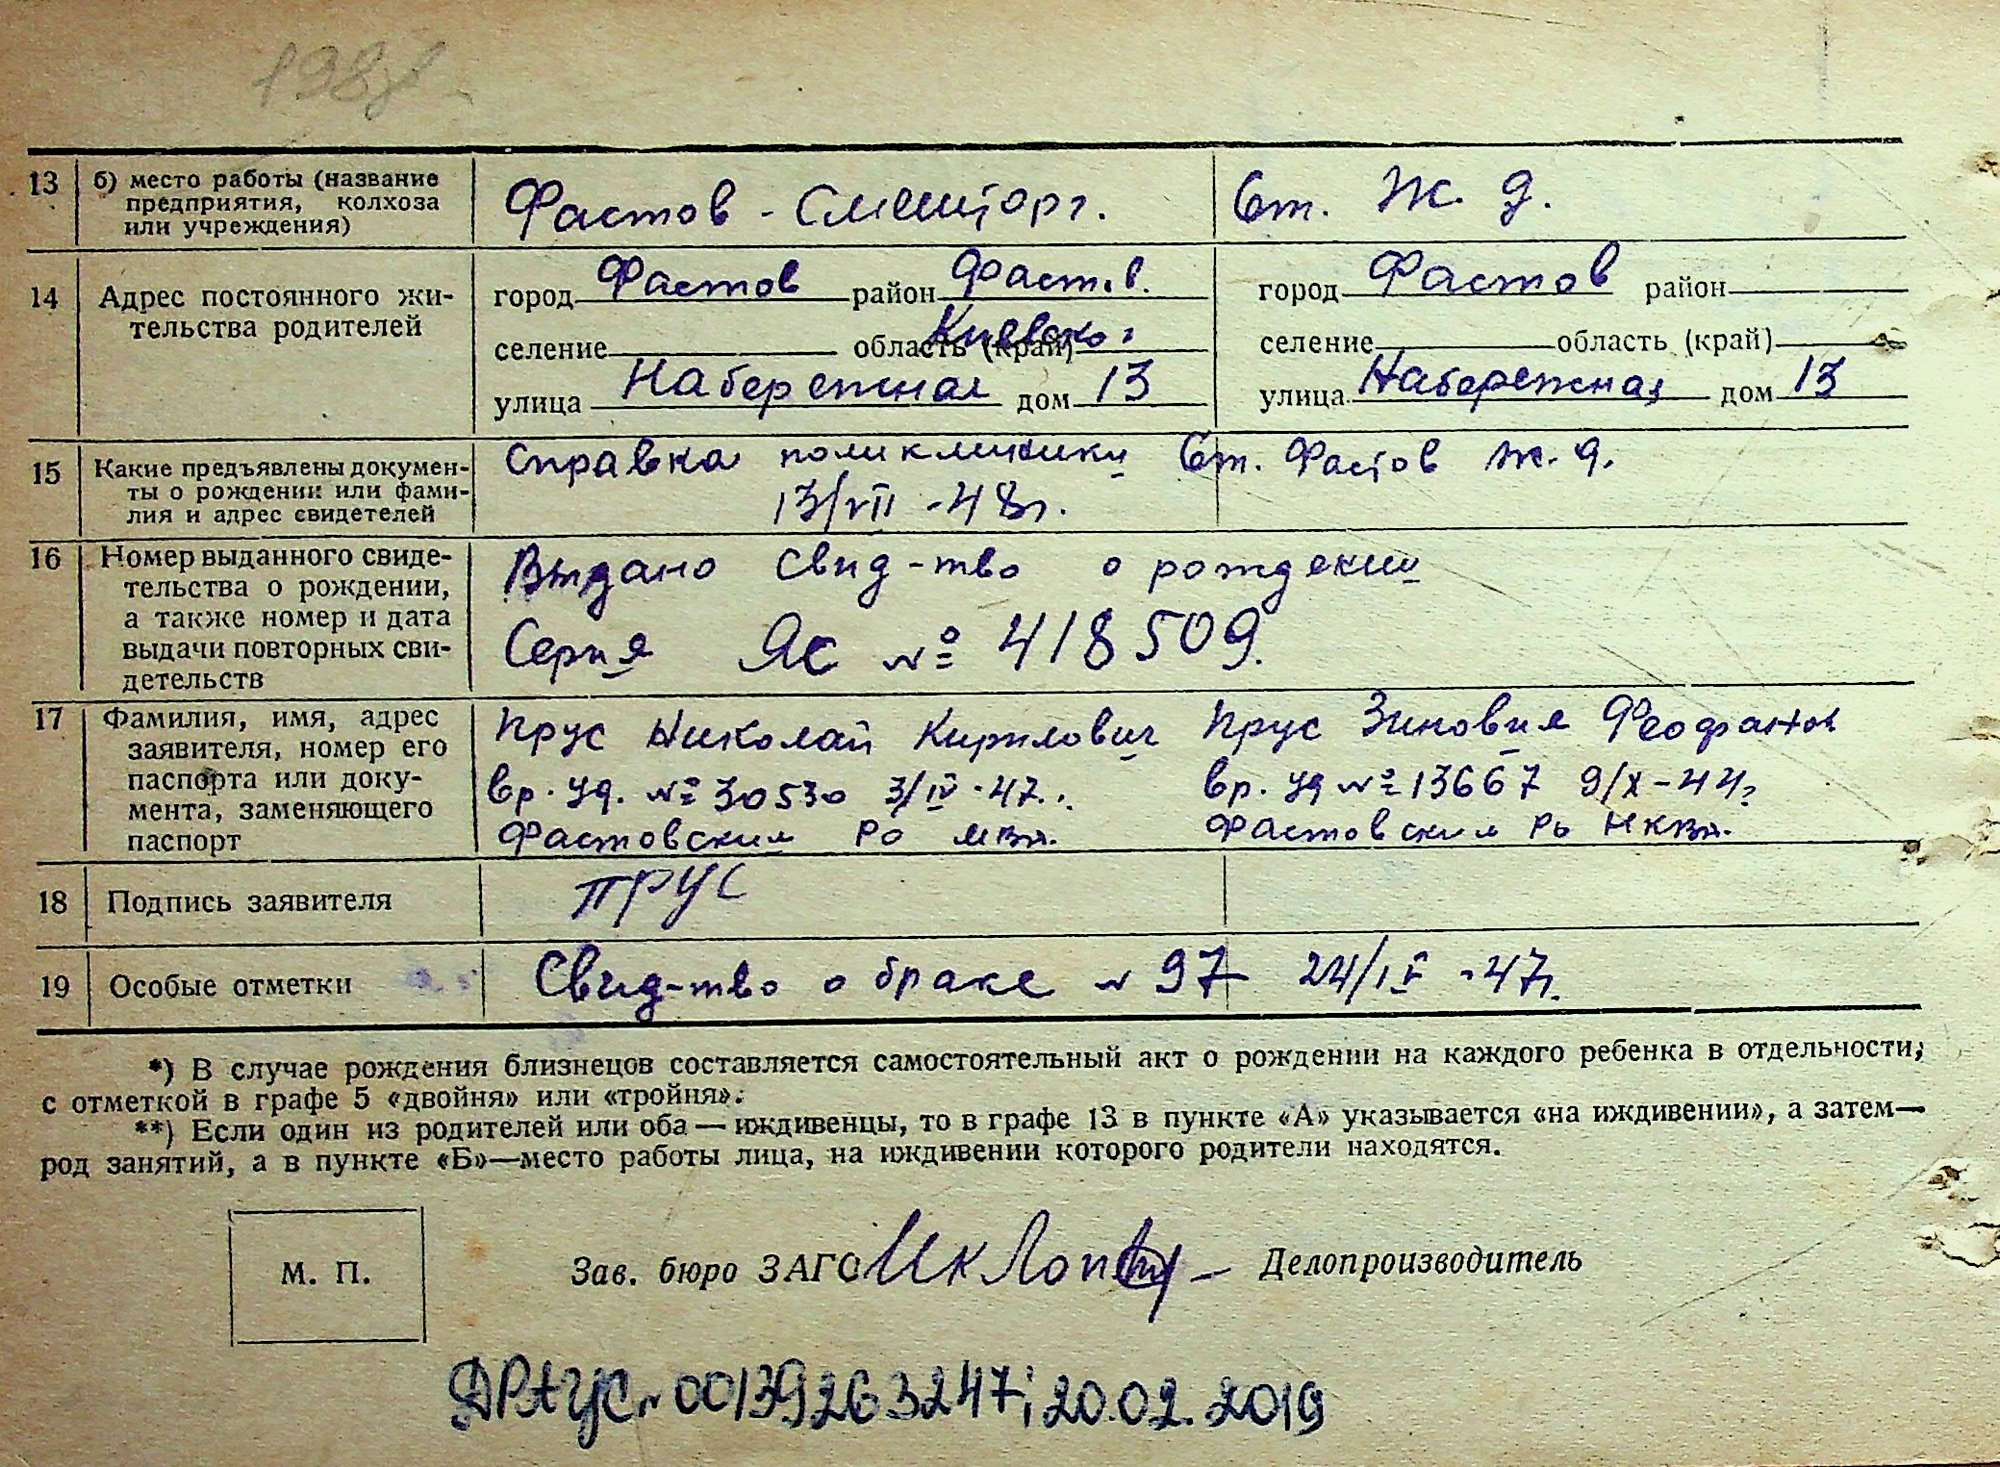 198
13 б) место работы (название Фастов - Смешторг. Ст. Ж. д.
предприятия, колхоза
или учреждения)
14 Адрес постоянного жи- город Фастов район Фаст.в. город Фастов район
тельства родителей селение область (край) Киевско селение область (край)
улица Набережная дом 13 улица Набережная дом 13
15 Какие предъявлены докумен- Справка поликлиники Ст. Фастов ж.д.
ты о рождении или фами- 13/VII - 48г.
лия и адрес свидетелей
16 Номер выданного свиде- Выдано свид-тво о рождении
тельства о рождении,
а также номер и дата Серия Яс № 418509.
выдачи повторных сви-
детельств
17 Фамилия, имя, адрес Прус Николай Кирилович Прус Зиновия Феофанов
заявителя, номер его
паспорта или доку- вр. уд. № 30530 3/IV - 47г. вр. уд № 13667 9/X - 44г
мента, заменяющего Фастовским РО МВД. Фастовским Ро НКВД.
паспорт
18 Подпись заявителя ПРУС
19 Особые отметки Свид-тво о браке № 97 24/IV - 47г.
*) В случае рождения близнецов составляется самостоятельный акт о рождении на каждого ребенка в отдельности,
с отметкой в графе 5 «двойня» или «тройня».
**) Если один из родителей или оба — иждивенцы, то в графе 13 в пункте «А» указывается «на иждивении», а затем—
род занятий, а в пункте «Б»—место работы лица, на иждивении которого родители находятся.
М. П. Зав. бюро ЗАГС Делопроизводитель
ДРАЦС № 00139263247; 20.02.2019